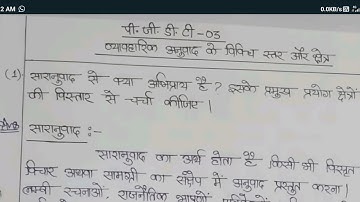 2 AM
0.0KB/s
पी. जी. डी. टी - 03
व्यावहारिक अनुवाद के विविध स्तर और क्षेत्र
(1) सारानुवाद से क्या अभिप्राय है? इसके प्रमुख प्रयोग क्षेत्रों
की विस्तार से चर्चा कीजिए।
Ans सारानुवाद :-
सारानुवाद का अर्थ होता है किसी भी विस्तृत
विचार अथवा सामग्री का संक्षेप में अनुवाद प्रस्तुत करना।
लम्बी रचनाओं, राजनैतिक भाषणों